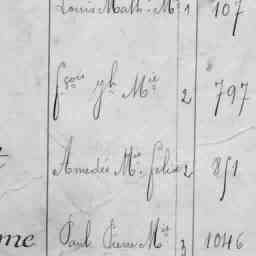 Louis Math. Mie 1 107
fçois yh Mie 2 797
Amedée Mie félix 2 851
me Paul Pierre Mie 3 1046